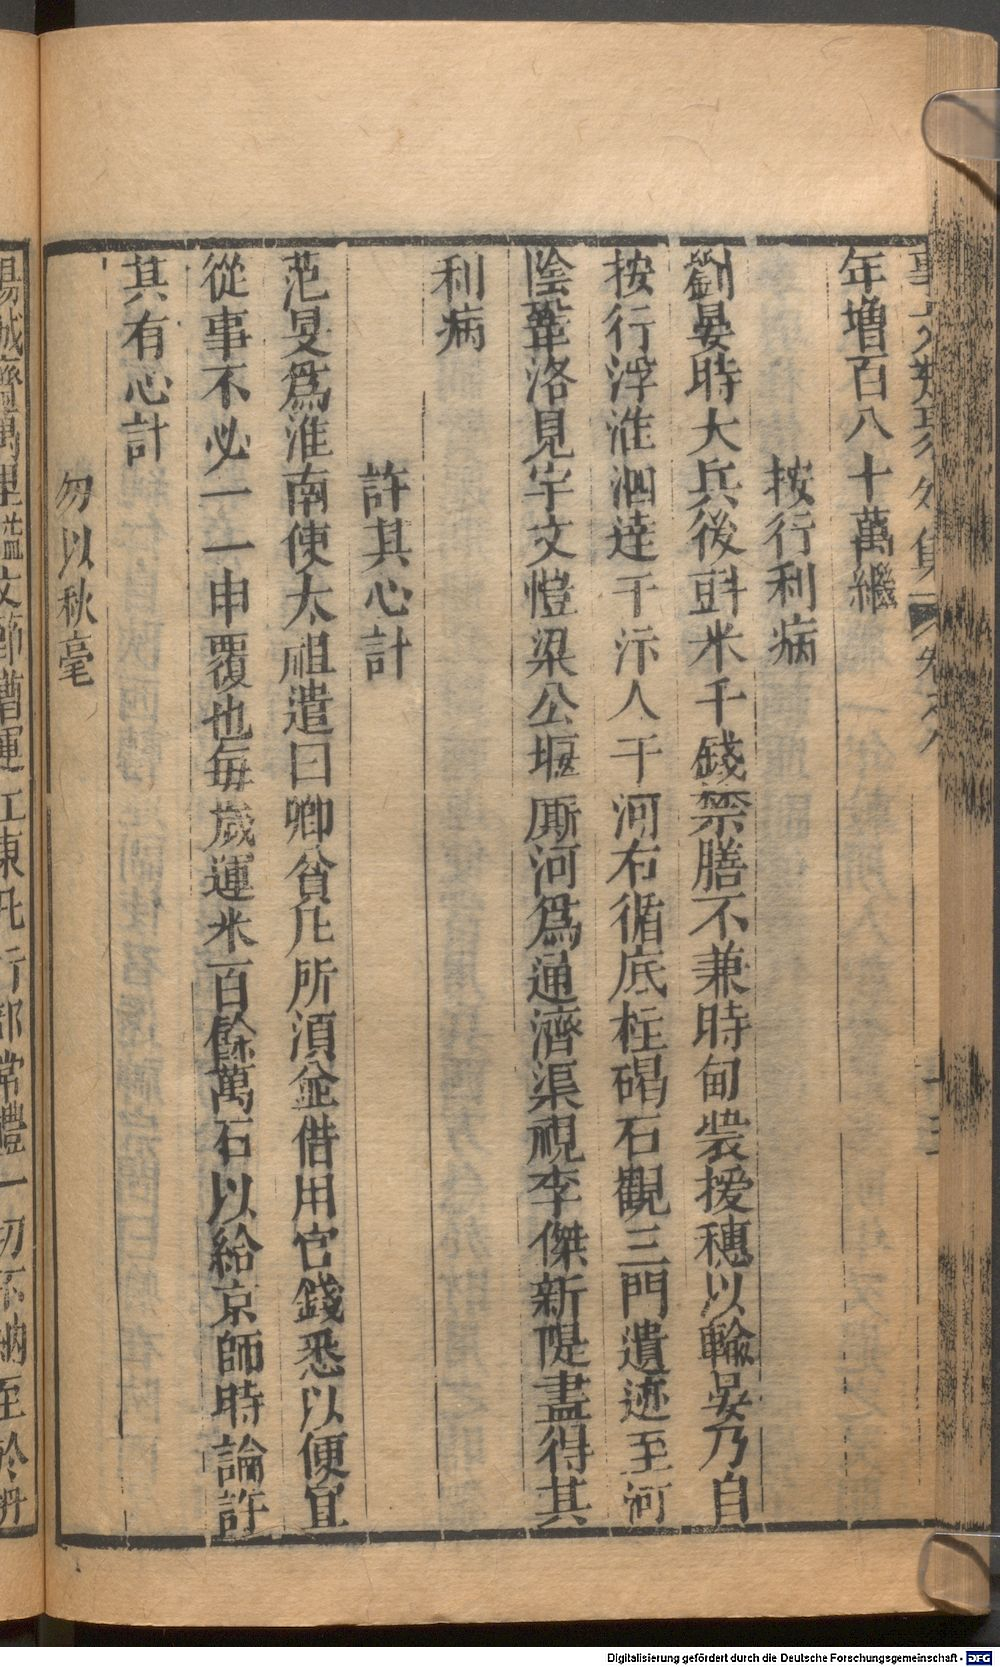 年增百八十萬繼
按行利病
劉晏時大兵後㪷米千錢禁膳不兼時甸農挼穗以輸晏乃自
按行浮淮泗達于汴入于河右循底柱硤石觀三門遺迹至河
陰鞏洛見宇文愷梁公堰厮河爲通濟渠視李傑新隄盡得其
利病
許其心計
范旻爲淮南使太祖遣曰卿貧凡所須並借用官錢悉以便宜
從事不必一一申覆也每歲運米百餘萬石以給京師時論許
其有心計
勿以秋毫
楊誠齋萬里誌文節漕運江東凡行部常禮一切不納至於
Digitalisierung gefördert durch die Deutsche Forschungsgemeinschaft - DFG